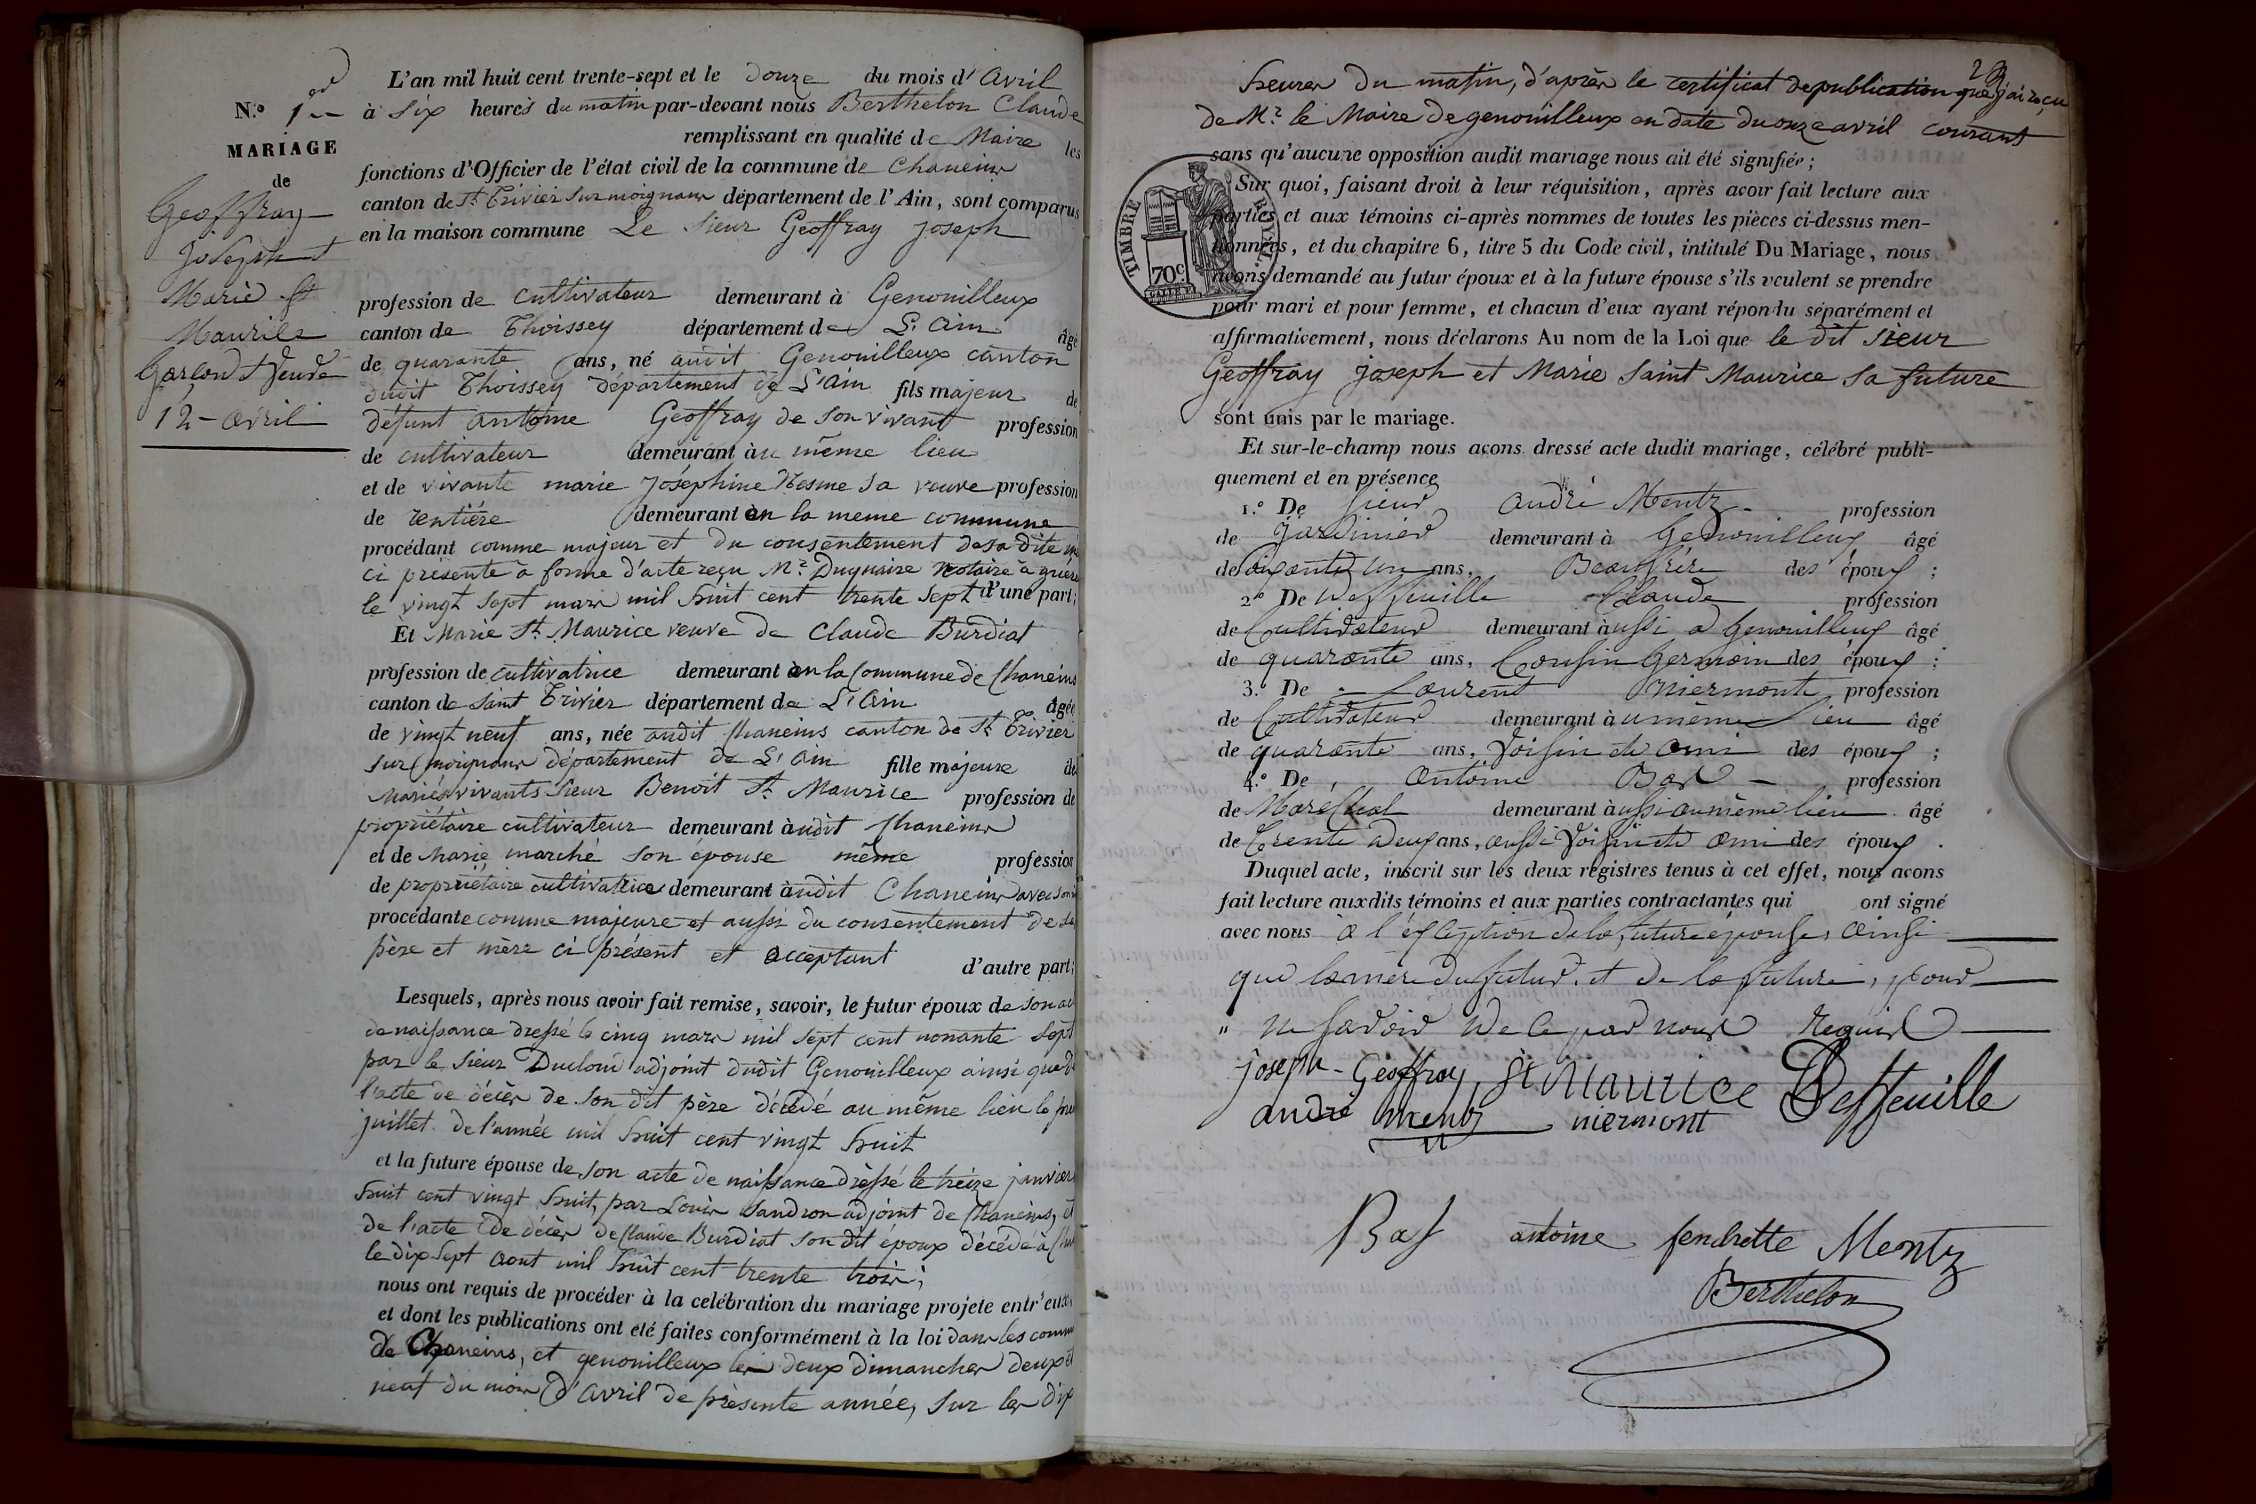 N.º 1er
MARIAGE
de
Geoffray
Joseph et
Marie St
Maurice
Garçon et Veuve
12 - avril
L'an mil huit cent trente-sept et le douze du mois d'avril
à six heures du matin par-devant nous Berthelon Claude
remplissant en qualité de Maire les
fonctions d'Officier de l'état civil de la commune de Chaneins
canton de St Trivier sur moignans département de l'Ain, sont comparus
en la maison commune Le sieur Geoffray joseph
profession de cultivateur demeurant à Genouilleux
canton de Thoissey département de L'ain âgé
de quarante ans, né audit Genouilleux canton
dudit Thoissey département de L'ain fils majeur de
défunt antoine Geoffray de son vivant profession
de cultivateur demeurant au même lieu
et de vivante marie Joséphine Mesme sa veuve profession
de rentière demeurant en la meme commune
procédant comme majeur et du consentement de sa dite
ci présente à forme d'acte reçu Mr Duquaire Notaire à
le vingt sept mars mil huit cent trente sept d'une part;
Et Marie St Maurice veuve de Claude Burdiat
profession de cultivatrice demeurant en la Commune de Chaneins
canton de Saint Trivier département de L'ain âgée
de vingt neuf ans, née audit Chaneins canton de St Trivier
sur moignans département de L'ain fille majeure de
mariés vivants Sieur Benoit St Maurice profession de
propriétaire cultivateur demeurant audit Chaneins
et de Marie marché son épouse même profession
de propriétaire cultivatrice demeurant audit Chaneins avec son
procédante comme majeure et aussi du consentement de sa
père et mère ci présent et acceptant d'autre part;
Lesquels, après nous avoir fait remise, savoir, le futur époux de son
de naissance dressé le cinq mars mil sept cent nonante sept
par le sieur Duclou adjoint dudit Genouilleux ainsi que de
l'acte de décès de son dit père décédé au même lieu le
juillet de l'année mil huit cent vingt huit
et la future épouse de son acte de naissance dressé le treize janvier
huit cent vingt huit, par Louis Sandron adjoint de Chaneins, et
de l'acte de décès de Claude Burdiat son dit époux décédé à
le dix sept aout mil huit cent trente trois;
nous ont requis de procéder à la celébration du mariage projete entr'eux,
et dont les publications ont eté faites conformément à la loi dans les
de Chaneins, et genouilleux les deux dimanches deux et
neuf du mois d'avril de présente année, sur les dix
29
heures du matin, d'après le certificat de publication que j'ai reçu
de Mr le Maire de genouilleux en date du onze avril courant
sans qu'aucune opposition audit mariage nous ait été signifiée;
TIMBRE ROYAL
70c
Sur quoi, faisant droit à leur réquisition, après avoir fait lecture aux
parties et aux témoins ci-après nommes de toutes les pièces ci-dessus men-
tionnées, et du chapitre 6, titre 5 du Code civil, intitulé Du Mariage, nous
avons demandé au futur époux et à la future épouse s'ils veulent se prendre
pour mari et pour femme, et chacun d'eux ayant répondu séparément et
affirmativement, nous déclarons Au nom de la Loi que le dit sieur
Geoffray joseph et Marie Saint Maurice sa future
sont unis par le mariage.
Et sur-le-champ nous avons dressé acte dudit mariage, célébré publi-
quement et en présence
1.º De sieur andré Mentz profession
de Jardinier demeurant à Genouilleux âgé
de soixante un ans, Beaufrère des époux;
2º De Desseuille Claude profession
de Cultivateur demeurant aussi à Genouilleux âgé
de quarante ans, Cousin Germain des époux;
3.º De Laurent Niermont profession
de Cultivateur demeurant au même Lieu âgé
de quarante ans, Voisin et ami des époux;
4.º De antoine Bas profession
de Maréchal demeurant aussi au même lieu âgé
de Trente deux ans, aussi Voisin et ami des époux.
Duquel acte, inscrit sur les deux registres tenus à cet effet, nous avons
fait lecture auxdits témoins et aux parties contractantes qui ont signé
avec nous à l'exception de la future épouse, ainsi
que la mère du futur, et de la future, pour
ne savoir de ce par nous Requis
joseph Geoffray St Maurice Desseuille
andré mentz niermont
Bas antoine fendrette Mentz
Berthelon